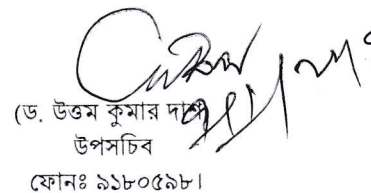 (ড. উত্তম কুমার দাশ)
উপসচিব
ফোনঃ ৯১৮০৫৯৮।